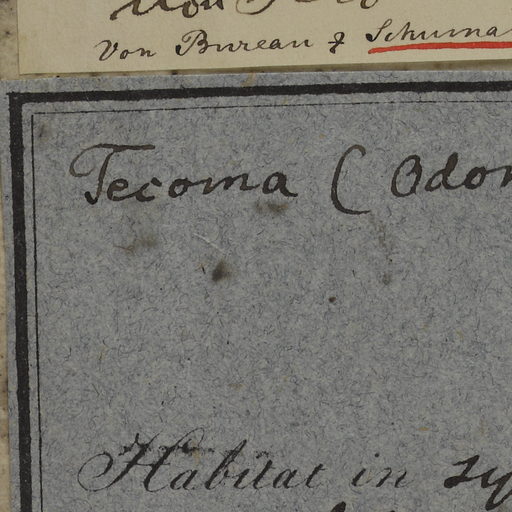 Von Bureau & Schuma
Tecoma ( Odon
Habitat in sy